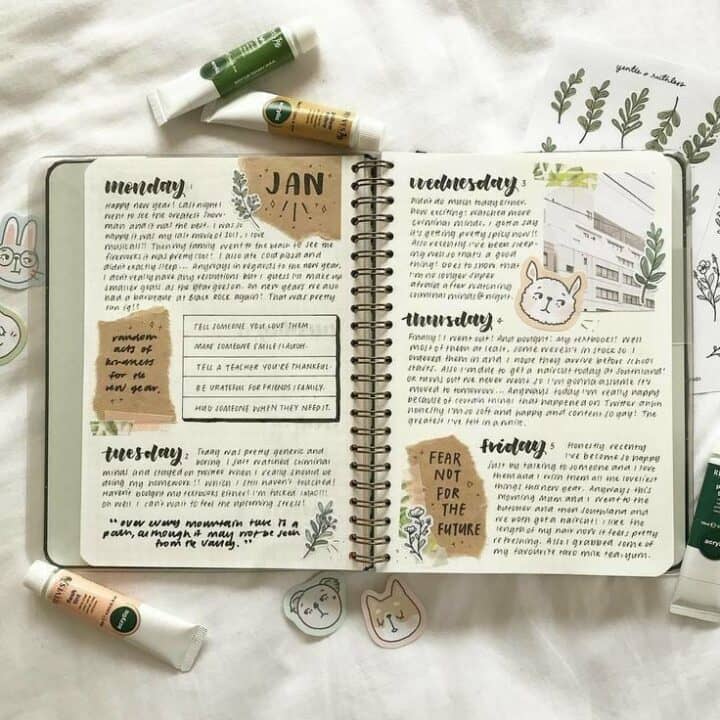 monday 1
JAN
Happy new year! Last night I
went to see the greatest show-
man and it was the best. I was so
happy it was my last movie of 2017. I love
musicals!! Then my family went to the beach to see the
fireworks it was pretty cool! I also ate cold pizza and
didn't exactly sleep... Anyways in regards to the new year,
I don't really have any resolutions but I guess I'll make my
smaller goals as the year goes on. On new years we also
had a barbeque at Black Rock again! That was pretty
fun :g!!
random
acts of
kindness
for the
new year.
TELL SOMEONE YOU LOVE THEM.
MAKE SOMEONE SMILE/LAUGH.
TELL A TEACHER YOU'RE THANKFUL.
BE GRATEFUL FOR FRIENDS/FAMILY.
HUG SOMEONE WHEN THEY NEED IT.
tuesday 2
Today was pretty generic and
boring I just watched criminal
minds and stayed on twitter when I really should be
doing my homework!! Which I still haven't touched!
Haven't bought my textbooks either! I'm fucked
oh well I can't wait to feel the upcoming stress!
"over every mountain there is a
path, although it may not be seen
from the valley."
wednesday 3
Didn't do much today either.
How exciting! Watched more
criminal minds, I gotta say
it's getting pretty spicy now!!
Also recently I've been sleep-
ing well so that's a good
thing! Goes to show that
I'm no longer super
afraid after watching
criminal minds @ night.
thursday 4
Finally! I went out! And bought! My textbooks! Well
most of them at least, some weren't in stock so I
ordered them in and I hope they arrive before school
starts. Also I'm due to get a haircut today at Southland
or but I've never went so I'm gonna assume it's
moved to tomorrow... Anyways today I'm really happy
because of certain things that happened on Twitter and
honestly I'm so soft and happy and content so yay! The
greatest I've felt in a while.
friday 5
Honestly, recently
I've become so happy
just by talking to someone and I love
them and I wish them all the loveliest
things this new year. Anyways this
morning Mum and I went to the
butcher and then Southland and
we both got a haircut! I like the
length of my hair now it feels pretty
refreshing. Also I grabbed some of
my favourite taro milk tea, yum.
FEAR
NOT
FOR
THE
FUTURE
gentle & ruthless
REEVES
acrylic